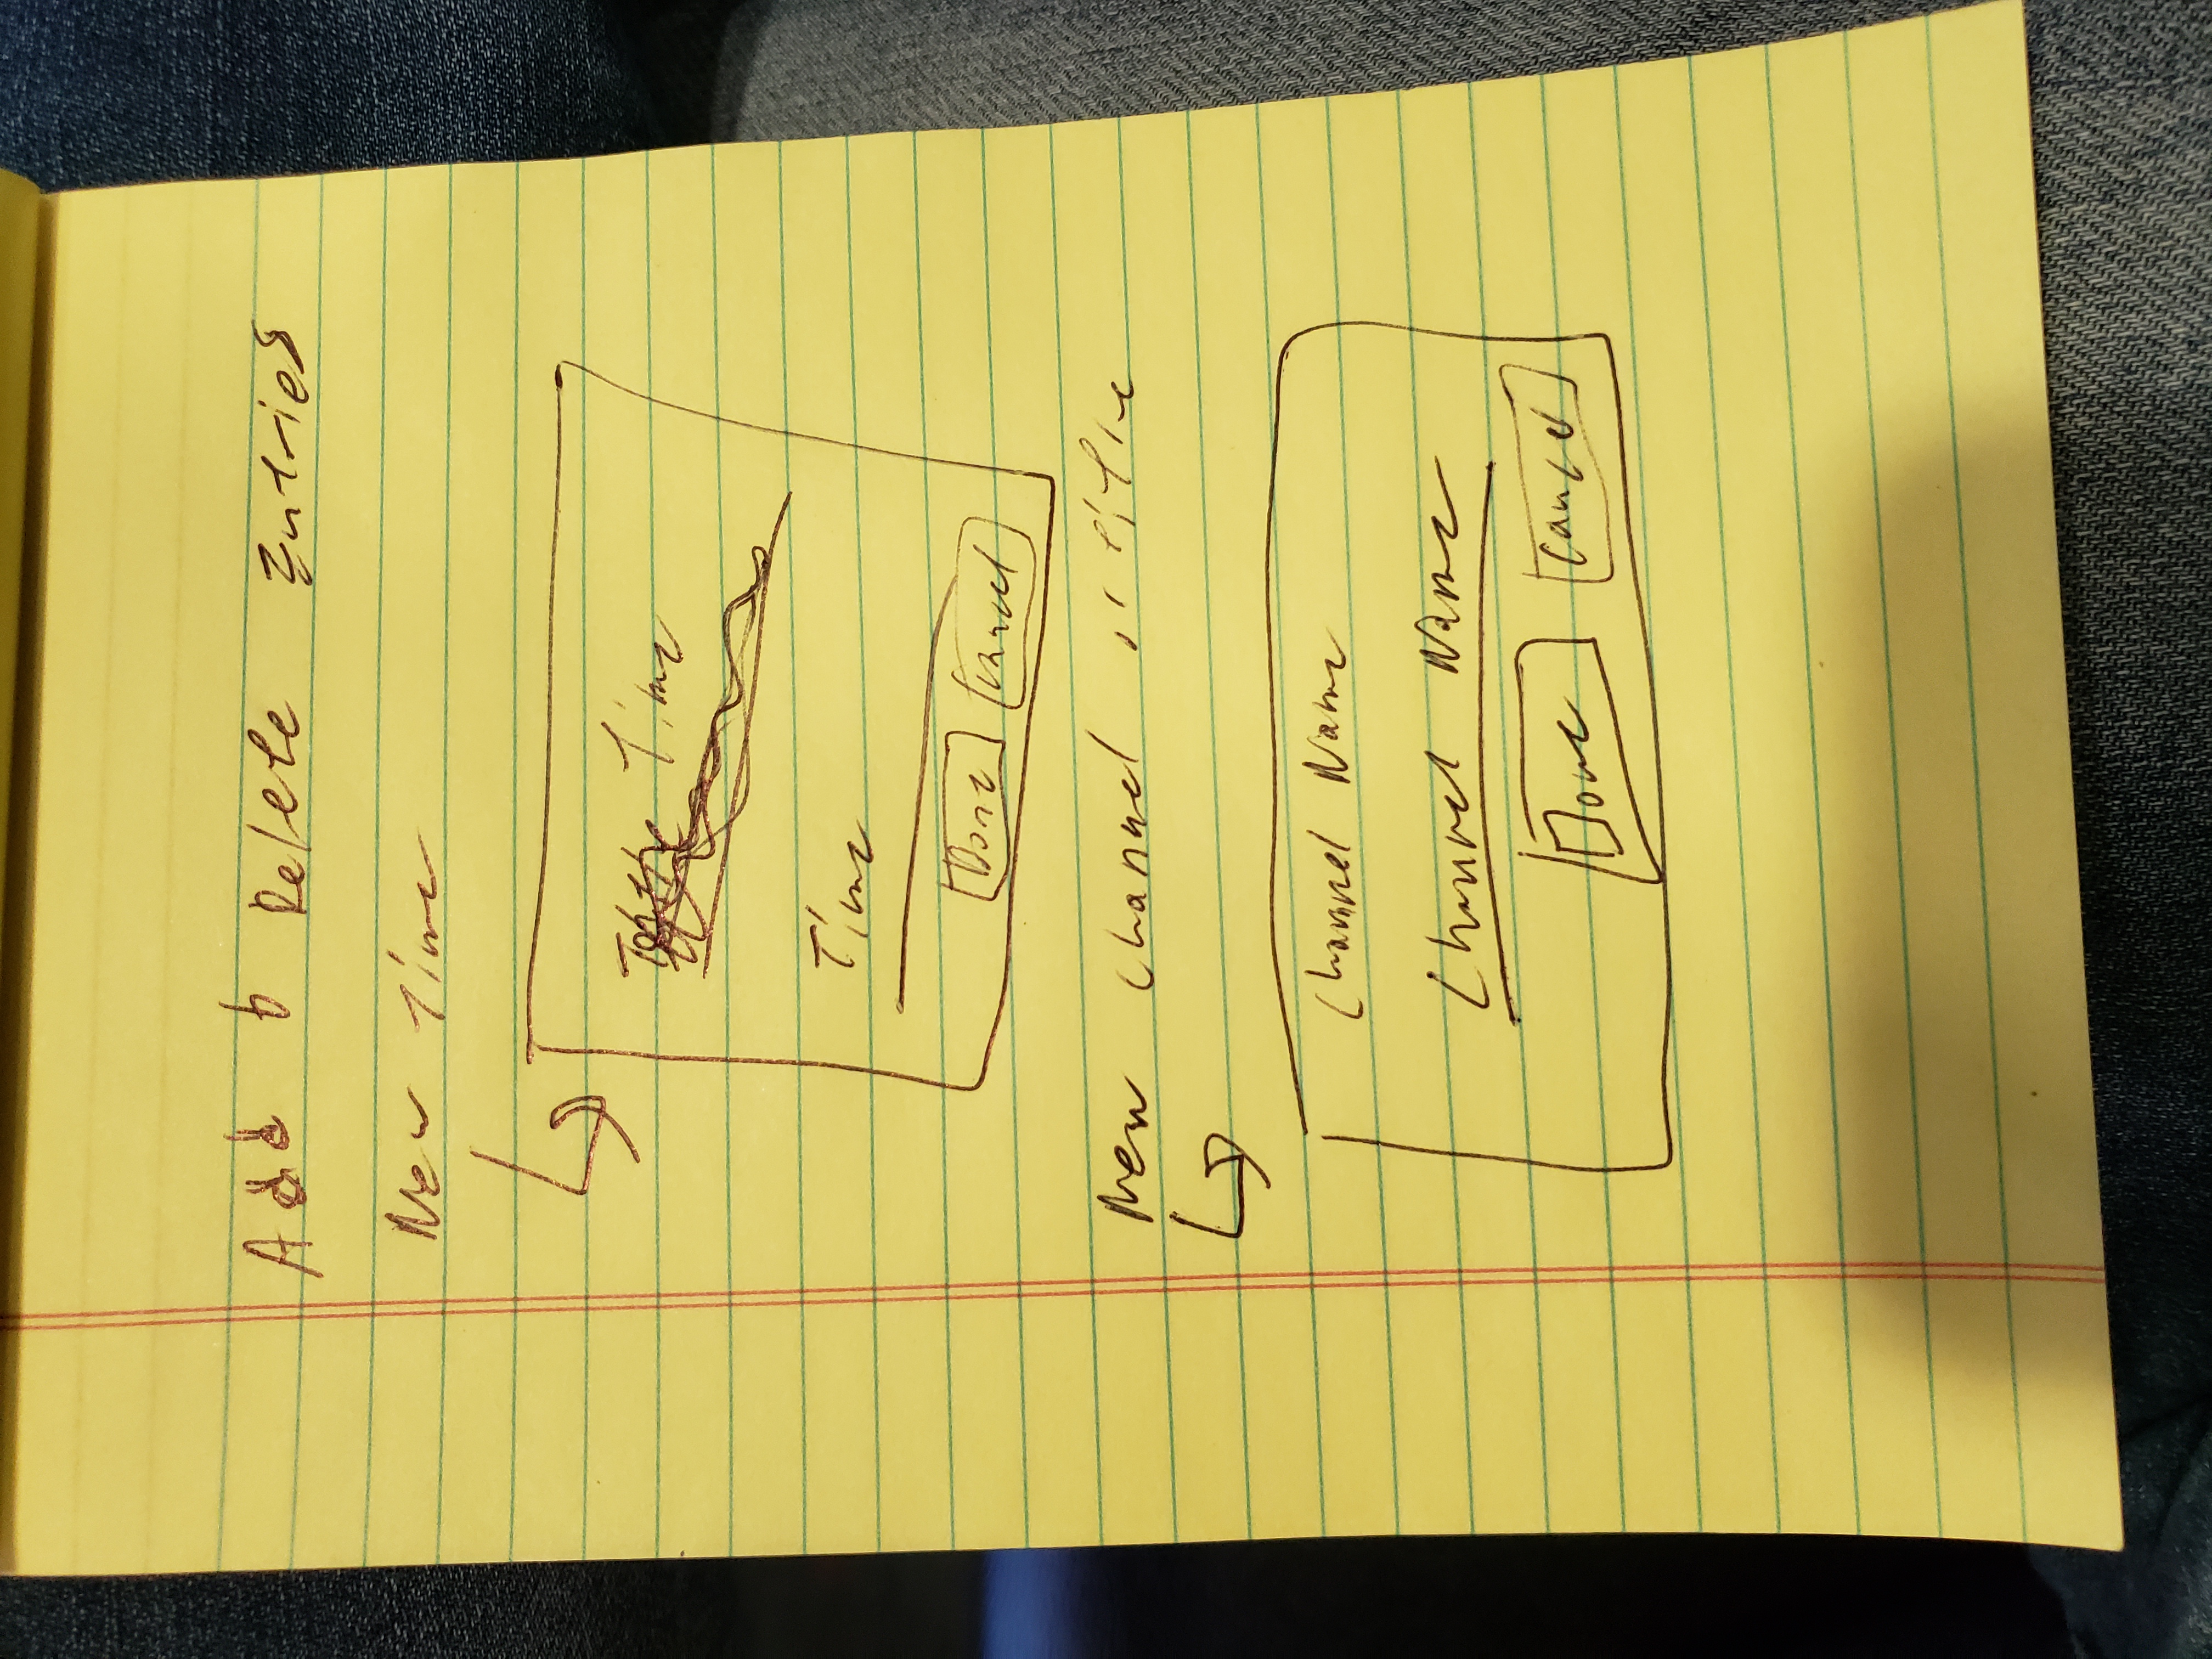 Add & Delete Entries
New Time
Time
Time
Done Cancel
New Channel
Channel Name
Channel Name
Done Cancel